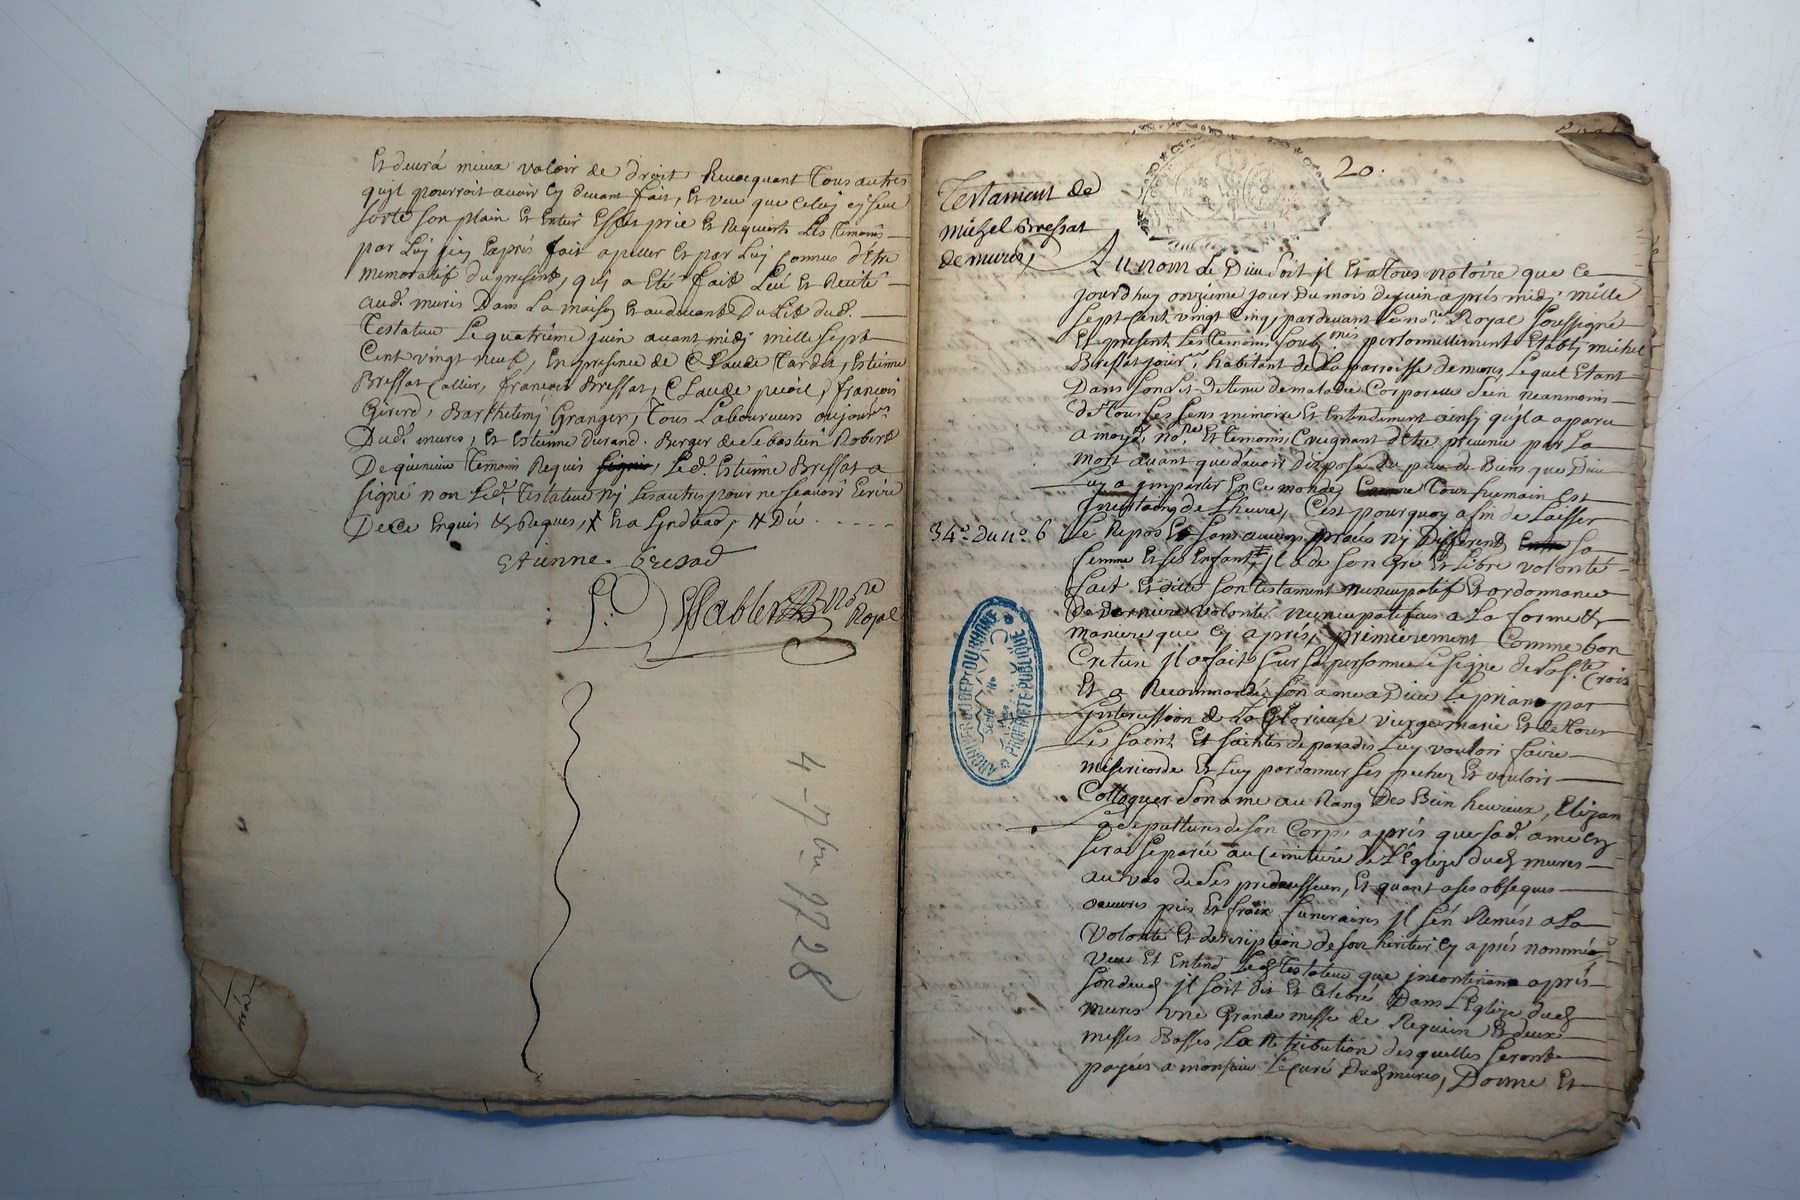 Et devra mieux valoir de droit Revocquant Tous autres
qu'jl pourroit avoir cy devant fait, Et veu que Celuy cy seul
sorte son plain et Entier Effet prie Et Requiert Les Temoins
par Luy jcy Exprés fait apeller Et par Luy Connus d'étre
memoratif du present, quj a Eté fait Leu et Recité
aud. mures Dans La maison Et audevant Du Lit dud.
Testateur Le quatrième juin avant midj mille sept
Cent vingt neuf, En presence de Claude Tardit, Estienne
Bressat Collier, françois Bressat, Claude , françois
Girerd, Barthelemj Granger, Tous Laboureurs
Dud. mures, Et Estienne durand. Berger de Sebastien Robert
De Temoins Requis Led. Estienne Bressat a
signé non Led. Testateur nj Les autres pour ne sçavoir Ecrire
De Ce Enquis & Reques,
Etienne Bresad
Nore
Royal
4 - 7bre 1728
20.
Testament de
michel Bressat
de mures
Au nom de Dieu Soit jl Et a Tous notoire que Ce
jourdhuy onzieme jour Du mois de juin aprés midj mille
sept Cent vingt Cinq, pardevant Le nore Royal Soussigné
Et present Les Temoins Soub nés personnellement Etablj michel
Bressat jourr. habitant de La parroisse de mures Lequel Etant
Dans son Lit Detenu de maladie Corporelle Sein neanmoins
de Tous Ses Sens memoire Et Entendement ainsj qu'jl a aparu
a moyd. nore. Et Temoins, Creignant d'Etre prevenu par La
mort avant que d'avoir disposé du peu de Biens que Dieu
Luy a jmpartis En Ce monde Tour humain Est
jncertaing de Lheure, C'est pourquoy afin de Laisser
34e. Du no. 6
Le Repos Et sans aucuns procés nj Differents Sa
femme Et Ses Enfants jl a de son Gré Et Libre volonté
fait Et dicté Son Testament nuncupatif Et ordonnance
De derniere volonté nuncupatifve a La forme &
maniere que Cy aprés, premierement Comme bon
Cretien jl a fait Sur Sa personne Le signe de La Ste. Croix
Et a Recommandé Son ame a Dieu Le priant par
Lintercession de La Glorieuse vierge marie Et de Tous
Les Saint Et Saintes de paradis Luy vouloir faire
misericorde Et Luy pardonner Ses pechez Et vouloir
Colloquer Son ame au Rang Des Bien heureux, Elizan
La de son Corps aprés que Sad. ame En
sera Separée au Cimitiere de L'Eglize dud. mures
au vas de Ses predecesseurs, Et quant a Ses obseques
œuvres pies Et fraix funeraires jl s'en Remet a La
volonté Et description de son heritier Cy aprés nommé
Veut Et Entend Led. Testateur que jncontinant aprés
Son deced jl soit dit Et Celebré Dans L'Eglize dud.
mures une Grande messe de Requiem Et deux
messes Basses, La Retribution desquelles Seront
payées a monsieur Le Curé Dud. mures, Donne Et
ARCHIVES DU DEPT DU RHONE
PROPRIETE PUBLIQUE